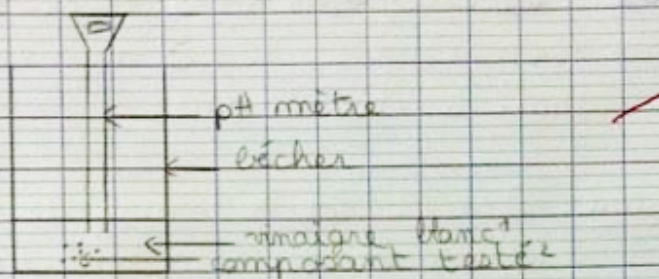 pH mètre
bécher
vinaigre blanc¹
composant testé²